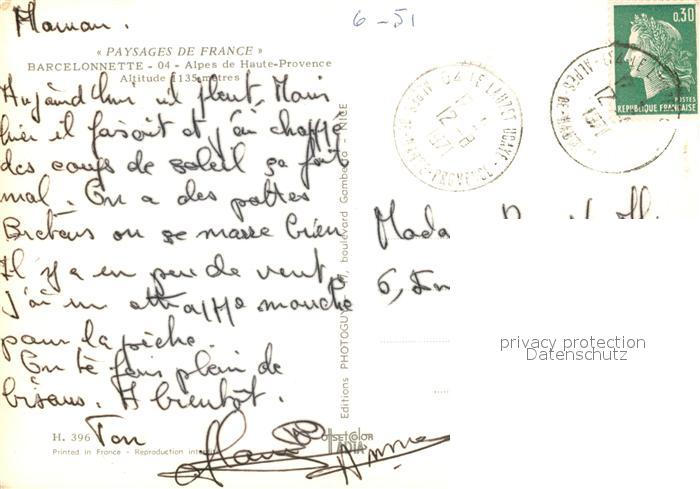 Maman.
6-51
« PAYSAGES DE FRANCE »
BARCELONNETTE - 04 - Alpes de Haute-Provence
Altitude 1135 mètres
Aujourd'hui il pleut, Mais
hier il faisait et j'ai chopé
des coups de soleil ça fait
mal. On a des potes
Bretons on se marre bien
Il y a eu peu de vent
j'ai un attrape mouche
pour la pêche.
On te fais plein de
bisous. A bientôt.
Ton
H. 396
Printed in France - Reproduction
Editions PHOTOGUY, boulevard Gambetta - NICE
0.30
POSTES
REPUBLIQUE FRANÇAISE
04 LE LAUZET UBAYE
12-8
1971
Mada
6,
privacy protection
Datenschutz